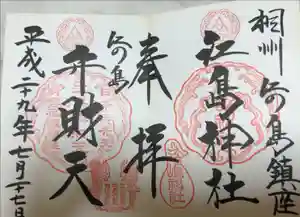 相州 ゑの島鎮座
江島神社
奉拝
ゑの島
弁財天
平成二十九年七月十七日